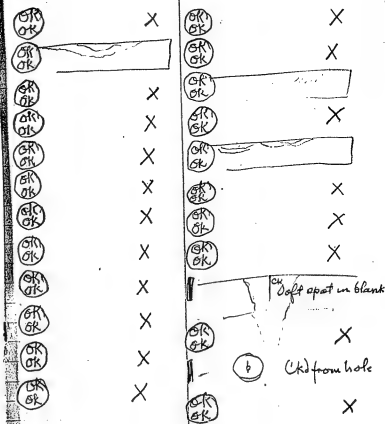 OK
OK X
OK
OK
OK
OK X
OK
OK X
OK
OK X
OK
OK X
OK
OK X
OK
OK X
OK
OK X
OK
OK X
OK
OK X
OK
OK X
OK
OK X
OK
OK X
OK
OK
OK
OK X
OK
OK
OK
OK X
OK
OK X
OK
OK X
CK Soft spot in blank
OK
OK X
6 Ckd from hole
OK
OK X